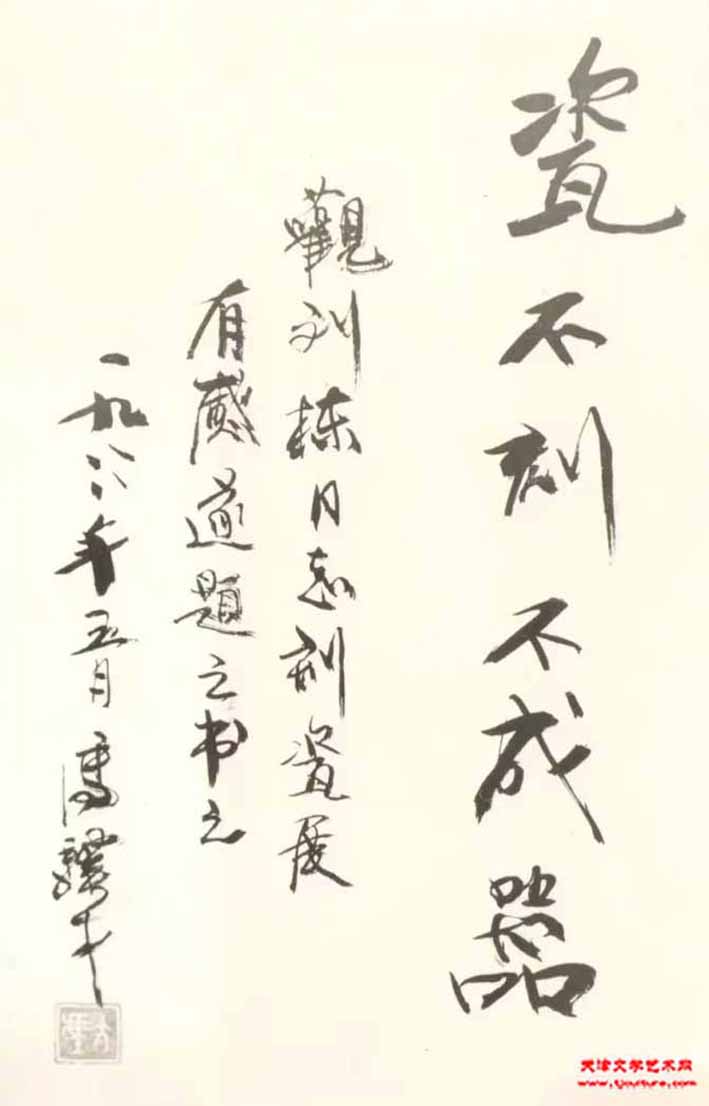 瓷不刻不成器
觀刘栋同志刻瓷展
有感遂题之书之
一九八八年五月 馮骥才
天津文学艺术网
www.tjculture.com